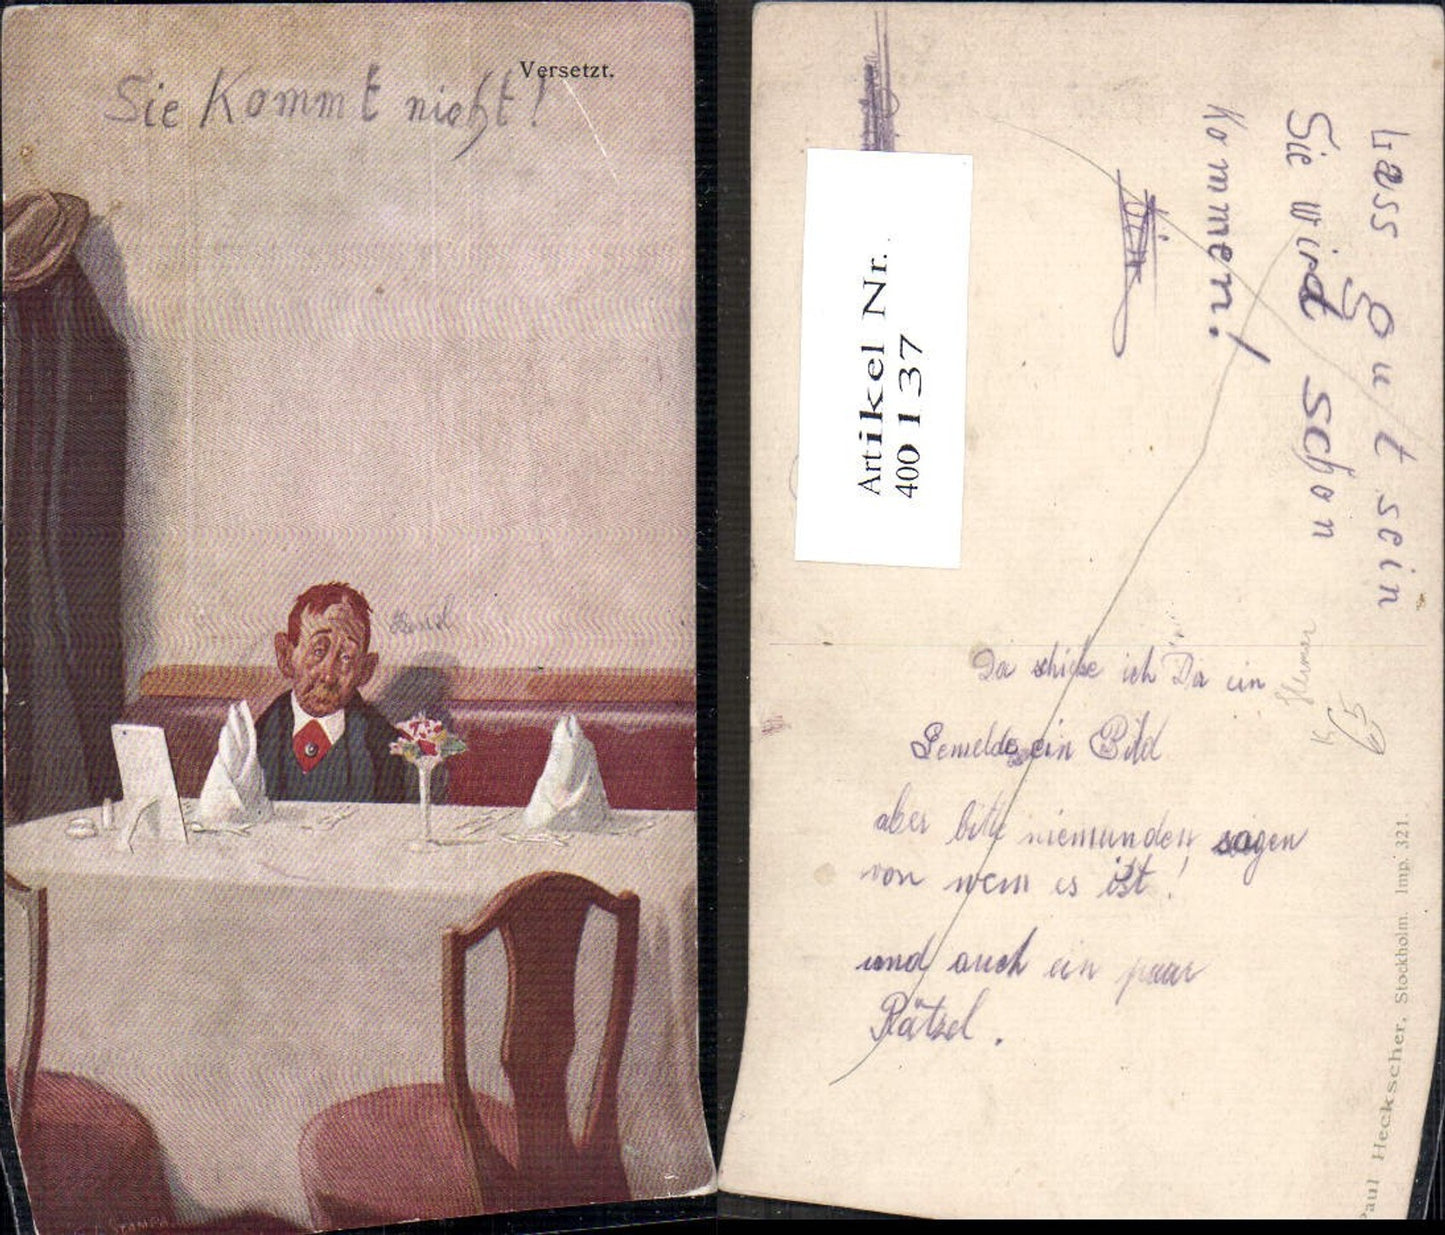 Versetzt.
Sie Kommt nicht!
Lass gut sein
Sie wird schon
Kommen!
Artikel Nr.
400137
Da schicke ich Dir ein
Gemeldes ein Bild
aber bitte niemanden sagen
von wem es ist!
und auch ein paar
Rätzel.
Paul Heckscher, Stockholm. Imp. 321.